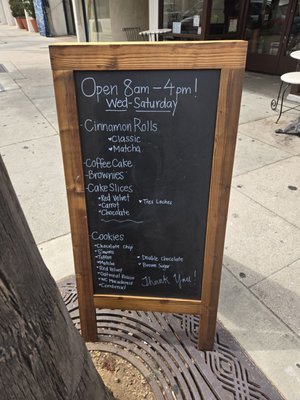 Open 8am-4pm!
Wed-Saturday
-Cinnamon Rolls
♥Classic
♥Matcha
-Coffee Cake
-Brownies
-Cake Slices
♥Red Velvet ♥Tres Leches
♥Carrot
♥Chocolate
Cookies
♥Chocolate Chip ♥Double Chocolate
♥S'mores ♥Brown Sugar
♥Matcha
♥Red Velvet
♥Oatmeal Raisin
♥White Macadamia
♥Cornbread
Thank You!